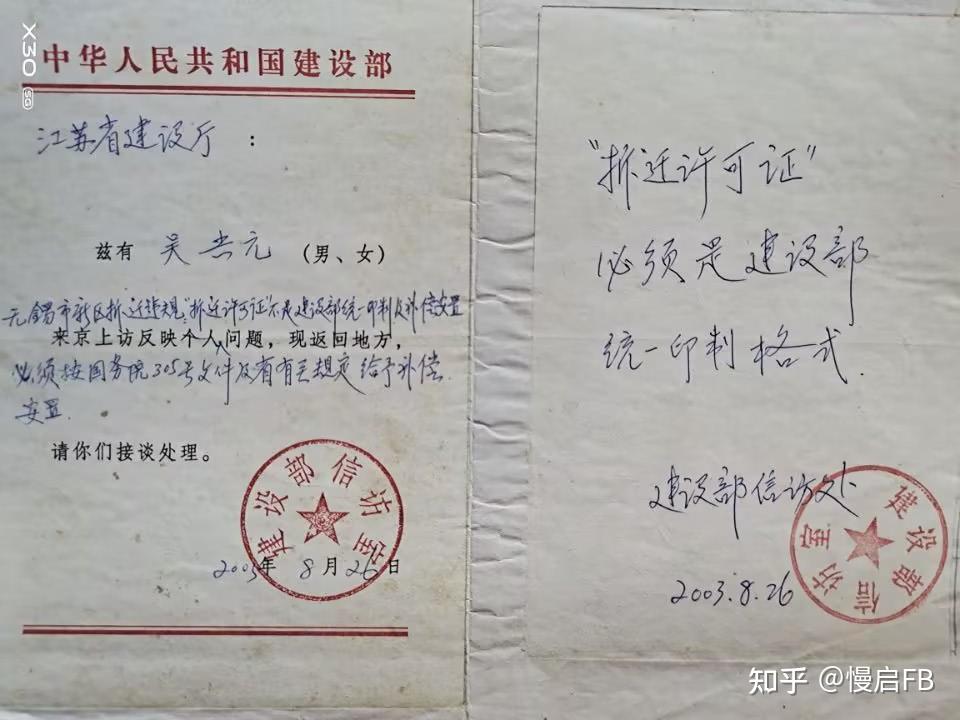 中华人民共和国建设部
江苏省建设厅：
兹有 吴杏元 （男、女）
无锡市新区拆迁违规，"拆迁许可证"不是建设部统一印制及补偿安置
来京上访反映个人问题，现返回地方，
必须按国务院305号文件及省有关规定给予补偿
安置.
请你们接谈处理。
建设部信访室
2003年8月26日
"拆迁许可证"
必须是建设部
统一印制格式.
建设部信访处
建设部信访室
2003.8.26
X30
知乎 @慢启FB